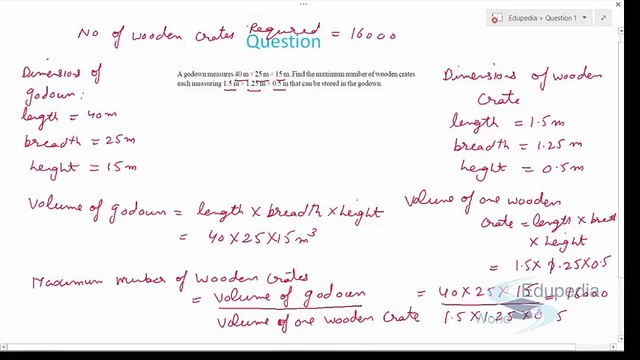 Edupedia > Question 1
No of wooden crates Required = 16000
Question
A godown measures 40 m × 25 m × 15 m. Find the maximum number of wooden crates
each measuring 1.5 m × 1.25 m × 0.5 m that can be stored in the godown.
Dimensions of
godown:
length = 40m
breadth = 25m
height = 15m
Dimensions of wooden
Crate
length = 1.5m
breadth = 1.25m
height = 0.5m
Volume of godown = length × breadth × height
= 40×25×15m³
Volume of one wooden
crate = length × bread
× height
= 1.5× 1.25×0.5
Maximum number of wooden crates
= Volume of godown
Volume of one wooden crate
= 40×25×15 = 16000
1.5×1.25×0.5
Edupedia
World